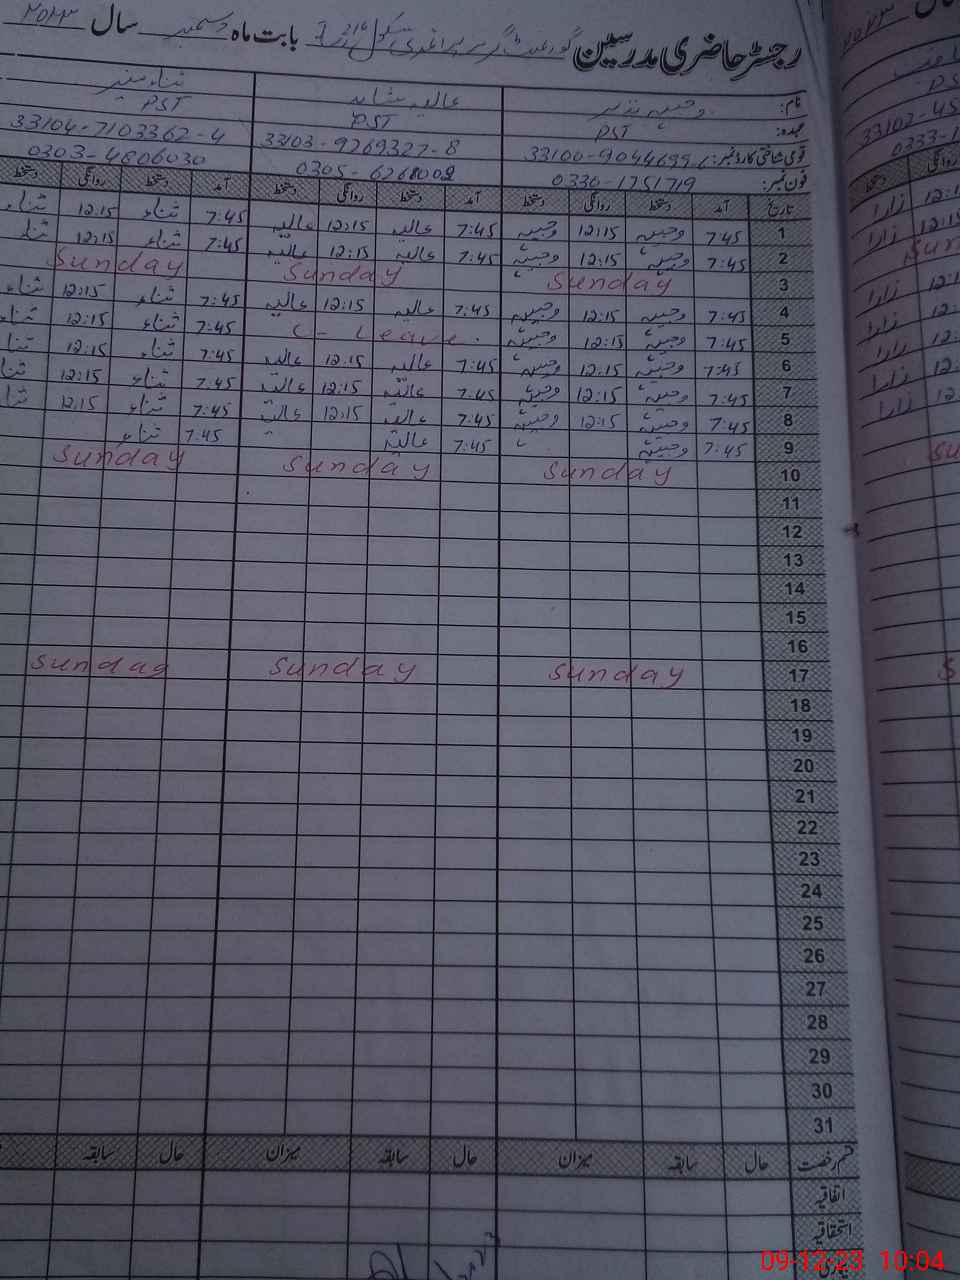 رجسٹر حاضری مدرسین گورنمنٹ گرلز پرائمری سکول بابت ماہ دسمبر سال ۲۰۲۳
نام: وحیبہ نذیر عالیہ شاہد ثناء منیر
عہدہ: PST PST PST
قومی شناختی کارڈ نمبر: 33100-9044699 33103-9269327-8 33104-7103362-4
فون نمبر: 0330-1751719 0305-6268002 0303-4806030
تاریخ آمد دستخط روانگی دستخط آمد دستخط روانگی دستخط آمد دستخط روانگی دستخط
1 7:45 وحیبہ 12:15 وحیبہ 7:45 عالیہ 12:15 عالیہ 7:45 ثناء 12:15 ثناء
2 7:45 وحیبہ 12:15 وحیبہ 7:45 عالیہ 12:15 عالیہ 7:45 ثناء 12:15 ثناء
3 Sunday Sunday Sunday
4 7:45 وحیبہ 12:15 وحیبہ 7:45 عالیہ 12:15 عالیہ 7:45 ثناء 12:15 ثناء
5 7:45 وحیبہ 12:15 وحیبہ C-Leave. 7:45 ثناء 12:15 ثناء
6 7:45 وحیبہ 12:15 وحیبہ 7:45 عالیہ 12:15 عالیہ 7:45 ثناء 12:15 ثناء
7 7:45 وحیبہ 12:15 وحیبہ 7:45 عالیہ 12:15 عالیہ 7:45 ثناء 12:15 ثناء
8 7:45 وحیبہ 12:15 وحیبہ 7:45 عالیہ 12:15 عالیہ 7:45 ثناء 12:15 ثناء
9 7:45 وحیبہ 7:45 عالیہ 7:45 ثناء
10 Sunday Sunday Sunday
11
12
13
14
15
16
17 Sunday Sunday Sunday
18
19
20
21
22
23
24
25
26
27
28
29
30
31
قسم رخصت حال سابقہ میزان حال سابقہ میزان حال سابقہ
اتفاقیہ
استحقاقیہ
09-12-23 10:04